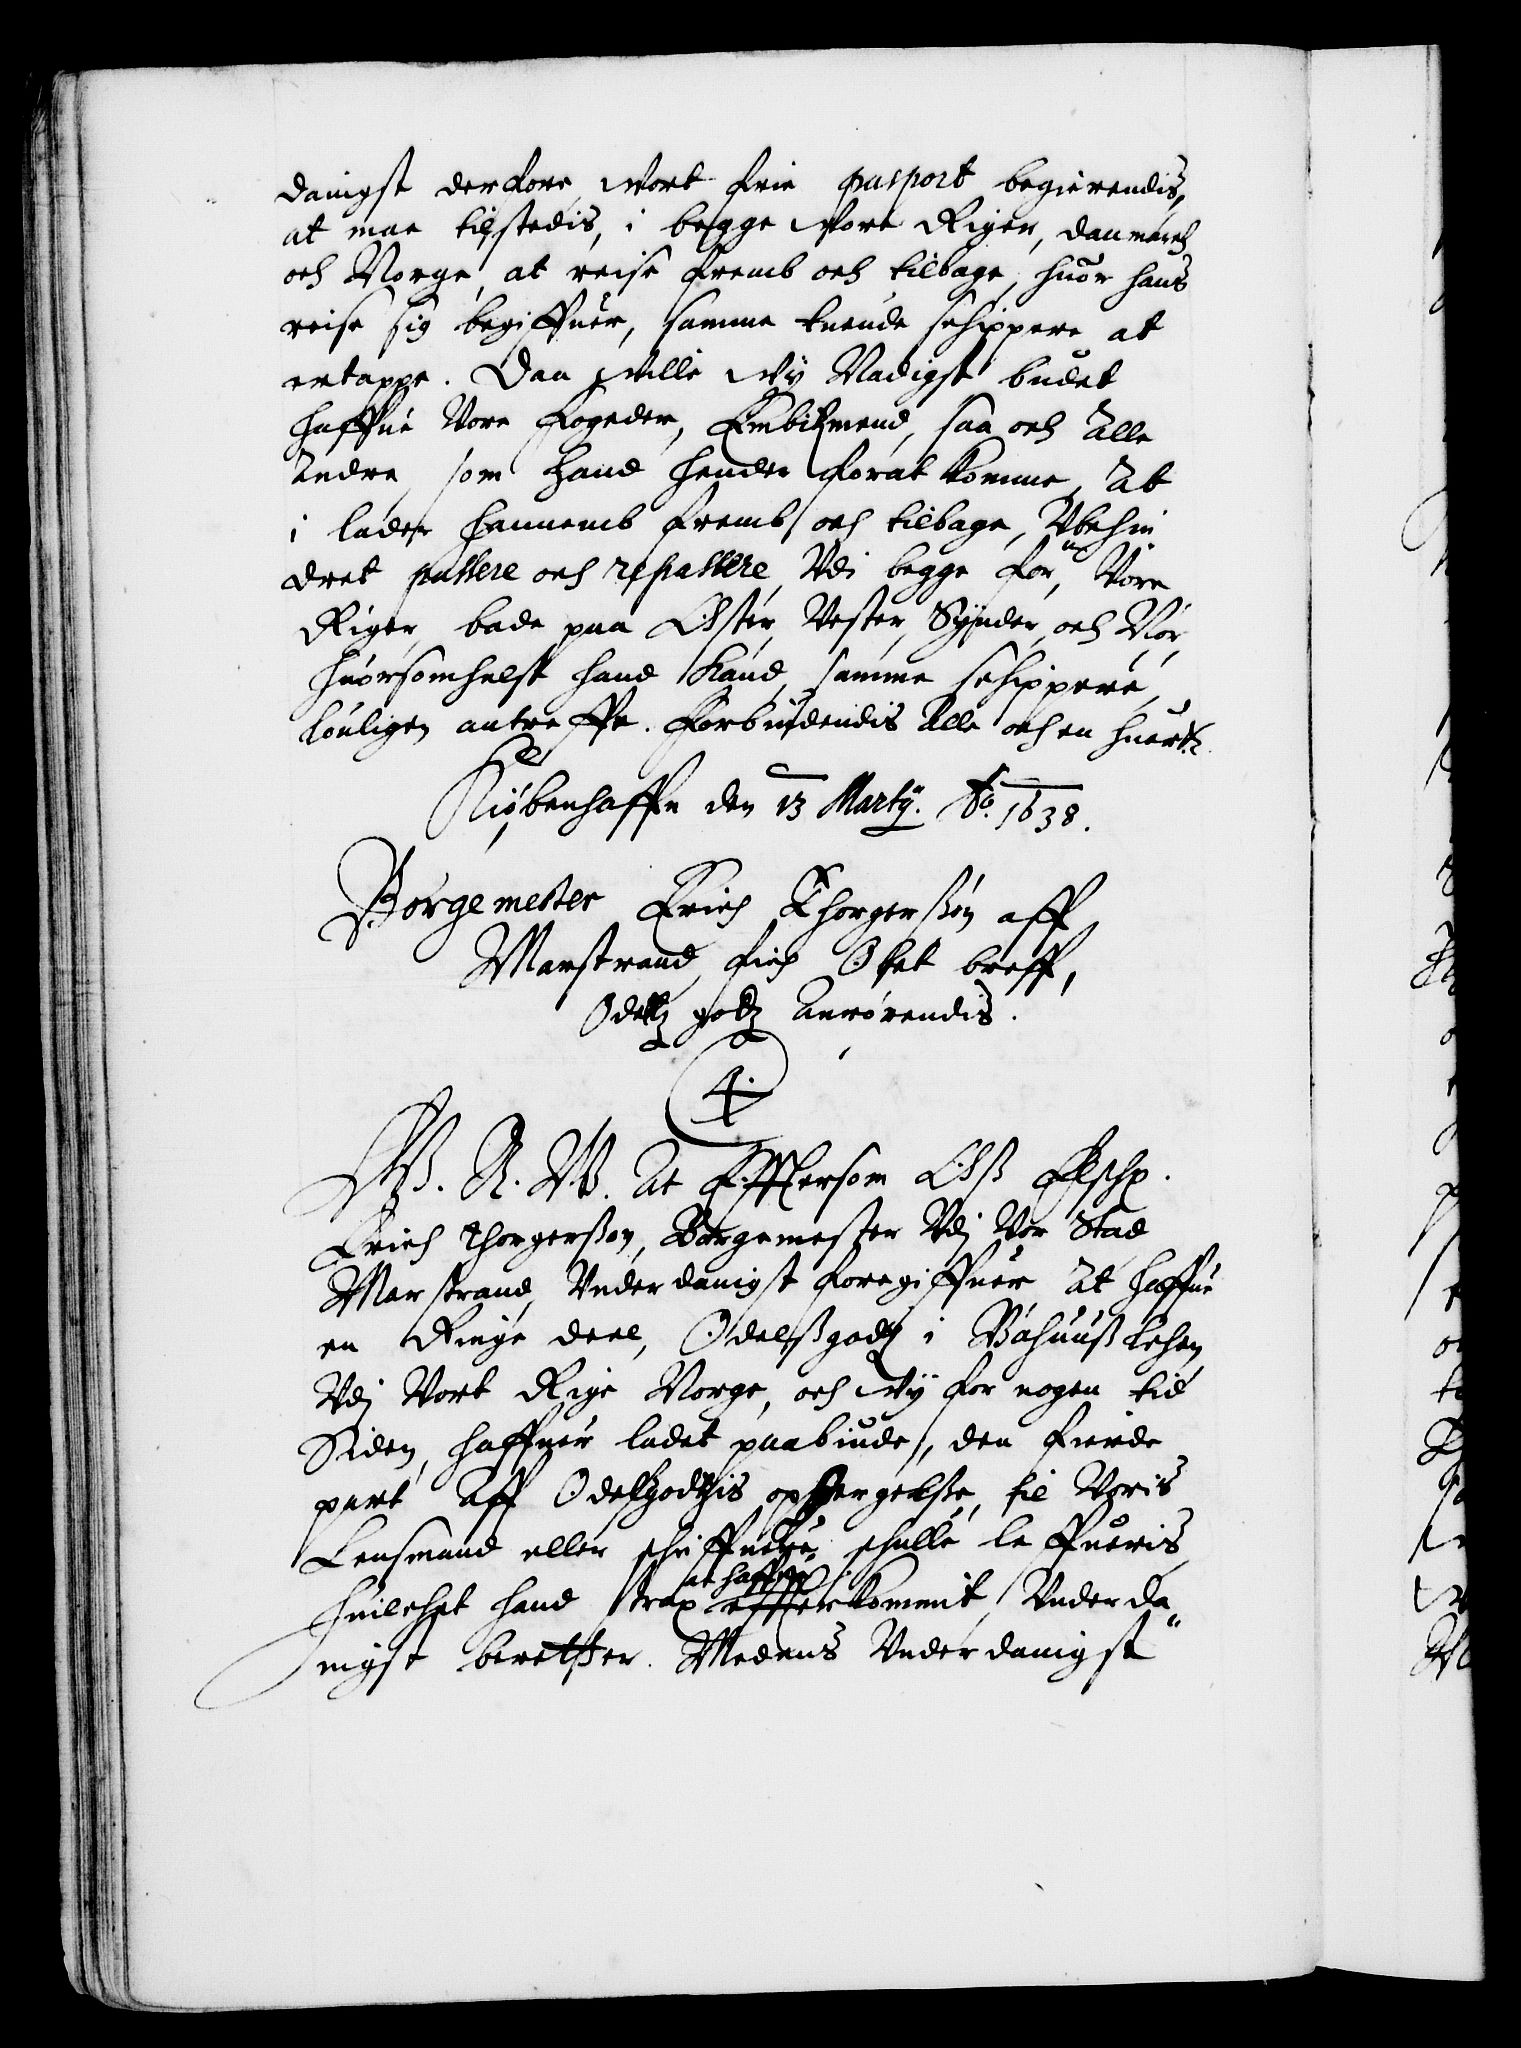 danigst derfore wort frie pasport begierendis,
at maa tilstedis, i begge wore Riger, danmarch
och Norge, at reise fremb och tilbage, huor hans
reise sig begiffuer, samme tuende schippere at
ertappe. Daa wille wy Nadigst budet
haffue Vore Fogeder, Embitzmend, saa och Alle
Andre som Hand hender forat komme, At
i lader hannemb fremb och tilbage, Vbehin
dret passere och repassere Vdi begge for.ne Vore
Riger, bade paa Øster, Vester, Synder och Nør
huorsomhelst hand Kand, samme schippere,
louligen antreffe. Forbiudendis Alle och en huer etc.
Kiøbenhaffn den 13 Martij. Ao. 1638.
Borgemester Erich Thorgerssøn aff
Marstrand, fich Obet breff,
Odeltz godtz Anrørendis.
4.
W. A. W. At Effttersom Oss Elschp.
Erich Thorgersson, Borgemester Vdj Vor Stad
Marstrand, Vnderdanigst foregiffuer At haffue
en Ringe deel, Odelssgodtz i Bahuuss Lehen
Vdj Vort Rige Norge, och wy for nogen tid
Siden, haffuer ladet paabiude, den fierde
part Aff Odelssgodtzis opbergelsse, til Voris
Lensmand eller schriffuere schulle leffueris
huilchet hand strax at haffue effterkommit, Vnderda
nigst beretter. Medens Vnderdanigst